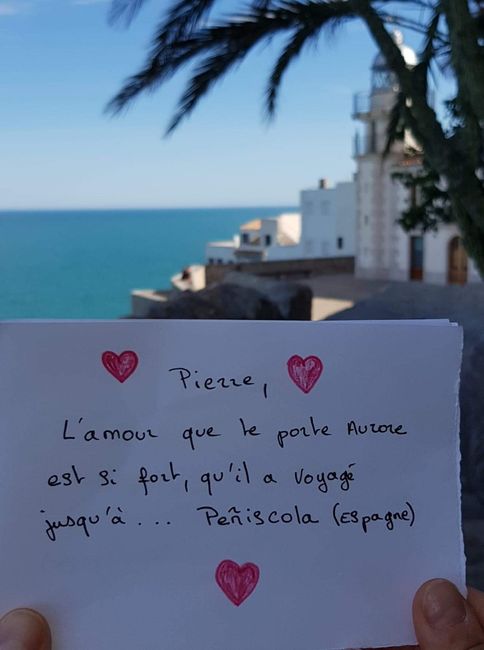 Pierre,
L'amour que te porte Aurore
est si fort, qu'il a voyagé
jusqu'à ... Peñiscola (Espagne)